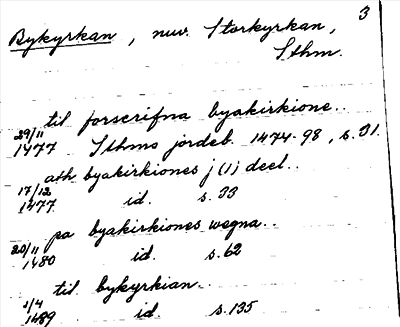 3
Bykyrkan, nuv. Storkyrkan,
Sthm.
til forscrifna byakirkione..
29/11
1477 Sthms jordeb. 1474-98, s. 31.
ath byakirkiones j (1) deel..
17/12
1477 id. s. 33
pa byakirkiones wegna..
20/11
1480 id. s. 62
til bykyrkian..
1/4
1489 id. s. 135